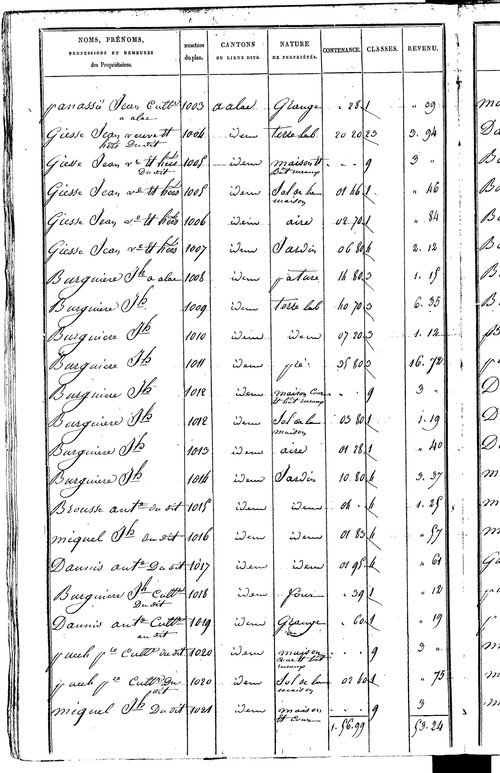 NOMS, PRÉNOMS, PROFESSIONS ET DEMEURES des Propriétaires. NUMÉROS du plan. CANTONS OU LIEUX DITS. NATURE DE PROPRIÉTÉS. CONTENANCE. CLASSES. REVENU.
panassié Jean Cultr a alac 1003 a alac Grange " 28 1 " 09
Giesse Jean veuve et hérs Du dit 1004 idem terre lab 20 20 23 3. 94
Giesse Jean ve et hérs Du dit 1005 idem maison et Bât ruraux . . . 9 3 "
Giesse Jean ve et hérs 1005 idem Sol de la maison 01 46 1 " 46
Giesse Jean ve et hérs 1006 idem aire 02 70 1 " 84
Giesse Jean ve et hérs 1007 idem Jardin 06 80 4 2. 12
Burguiere Jh a alac 1008 idem pature 14 80 3 1. 15
Burguiere Jh 1009 idem terre lab 40 70 3 6. 35
Burguiere Jh 1010 idem idem 07 20 3 1. 12
Burguiere Jh 1011 idem pré 35 80 3 16. 72
Burguiere Jh 1012 idem maison cour et bât ruraux . . 9 3 "
Burguiere Jh 1012 idem Sol de la maison 03 80 1 1. 19
Burguiere Jh 1013 idem aire 01 28 1 " 40
Burguiere Jh 1014 idem Jardin 10 80 4 3. 37
Brousse ante du dit 1015 idem idem 04 . 4 1. 25
miquel Jh du dit 1016 idem idem 01 83 4 " 57
Daunis ante Du dit 1017 idem idem 01 95 4 " 61
Burguiere Jh Cultr Du dit 1018 idem four . 39 1 " 12
Daunis ante Cultr au dit 1019 idem Grange . 60 1 " 19
pre Cultr du dit 1020 idem maison cour et bât ruraux . . . 9 3 "
pre Cultr Du dit 1020 idem Sol de la maison 02 40 1 " 75
miquel Jh Du dit 1021 idem maison et cour . . . 9 3
1. 56. 99 53. 24